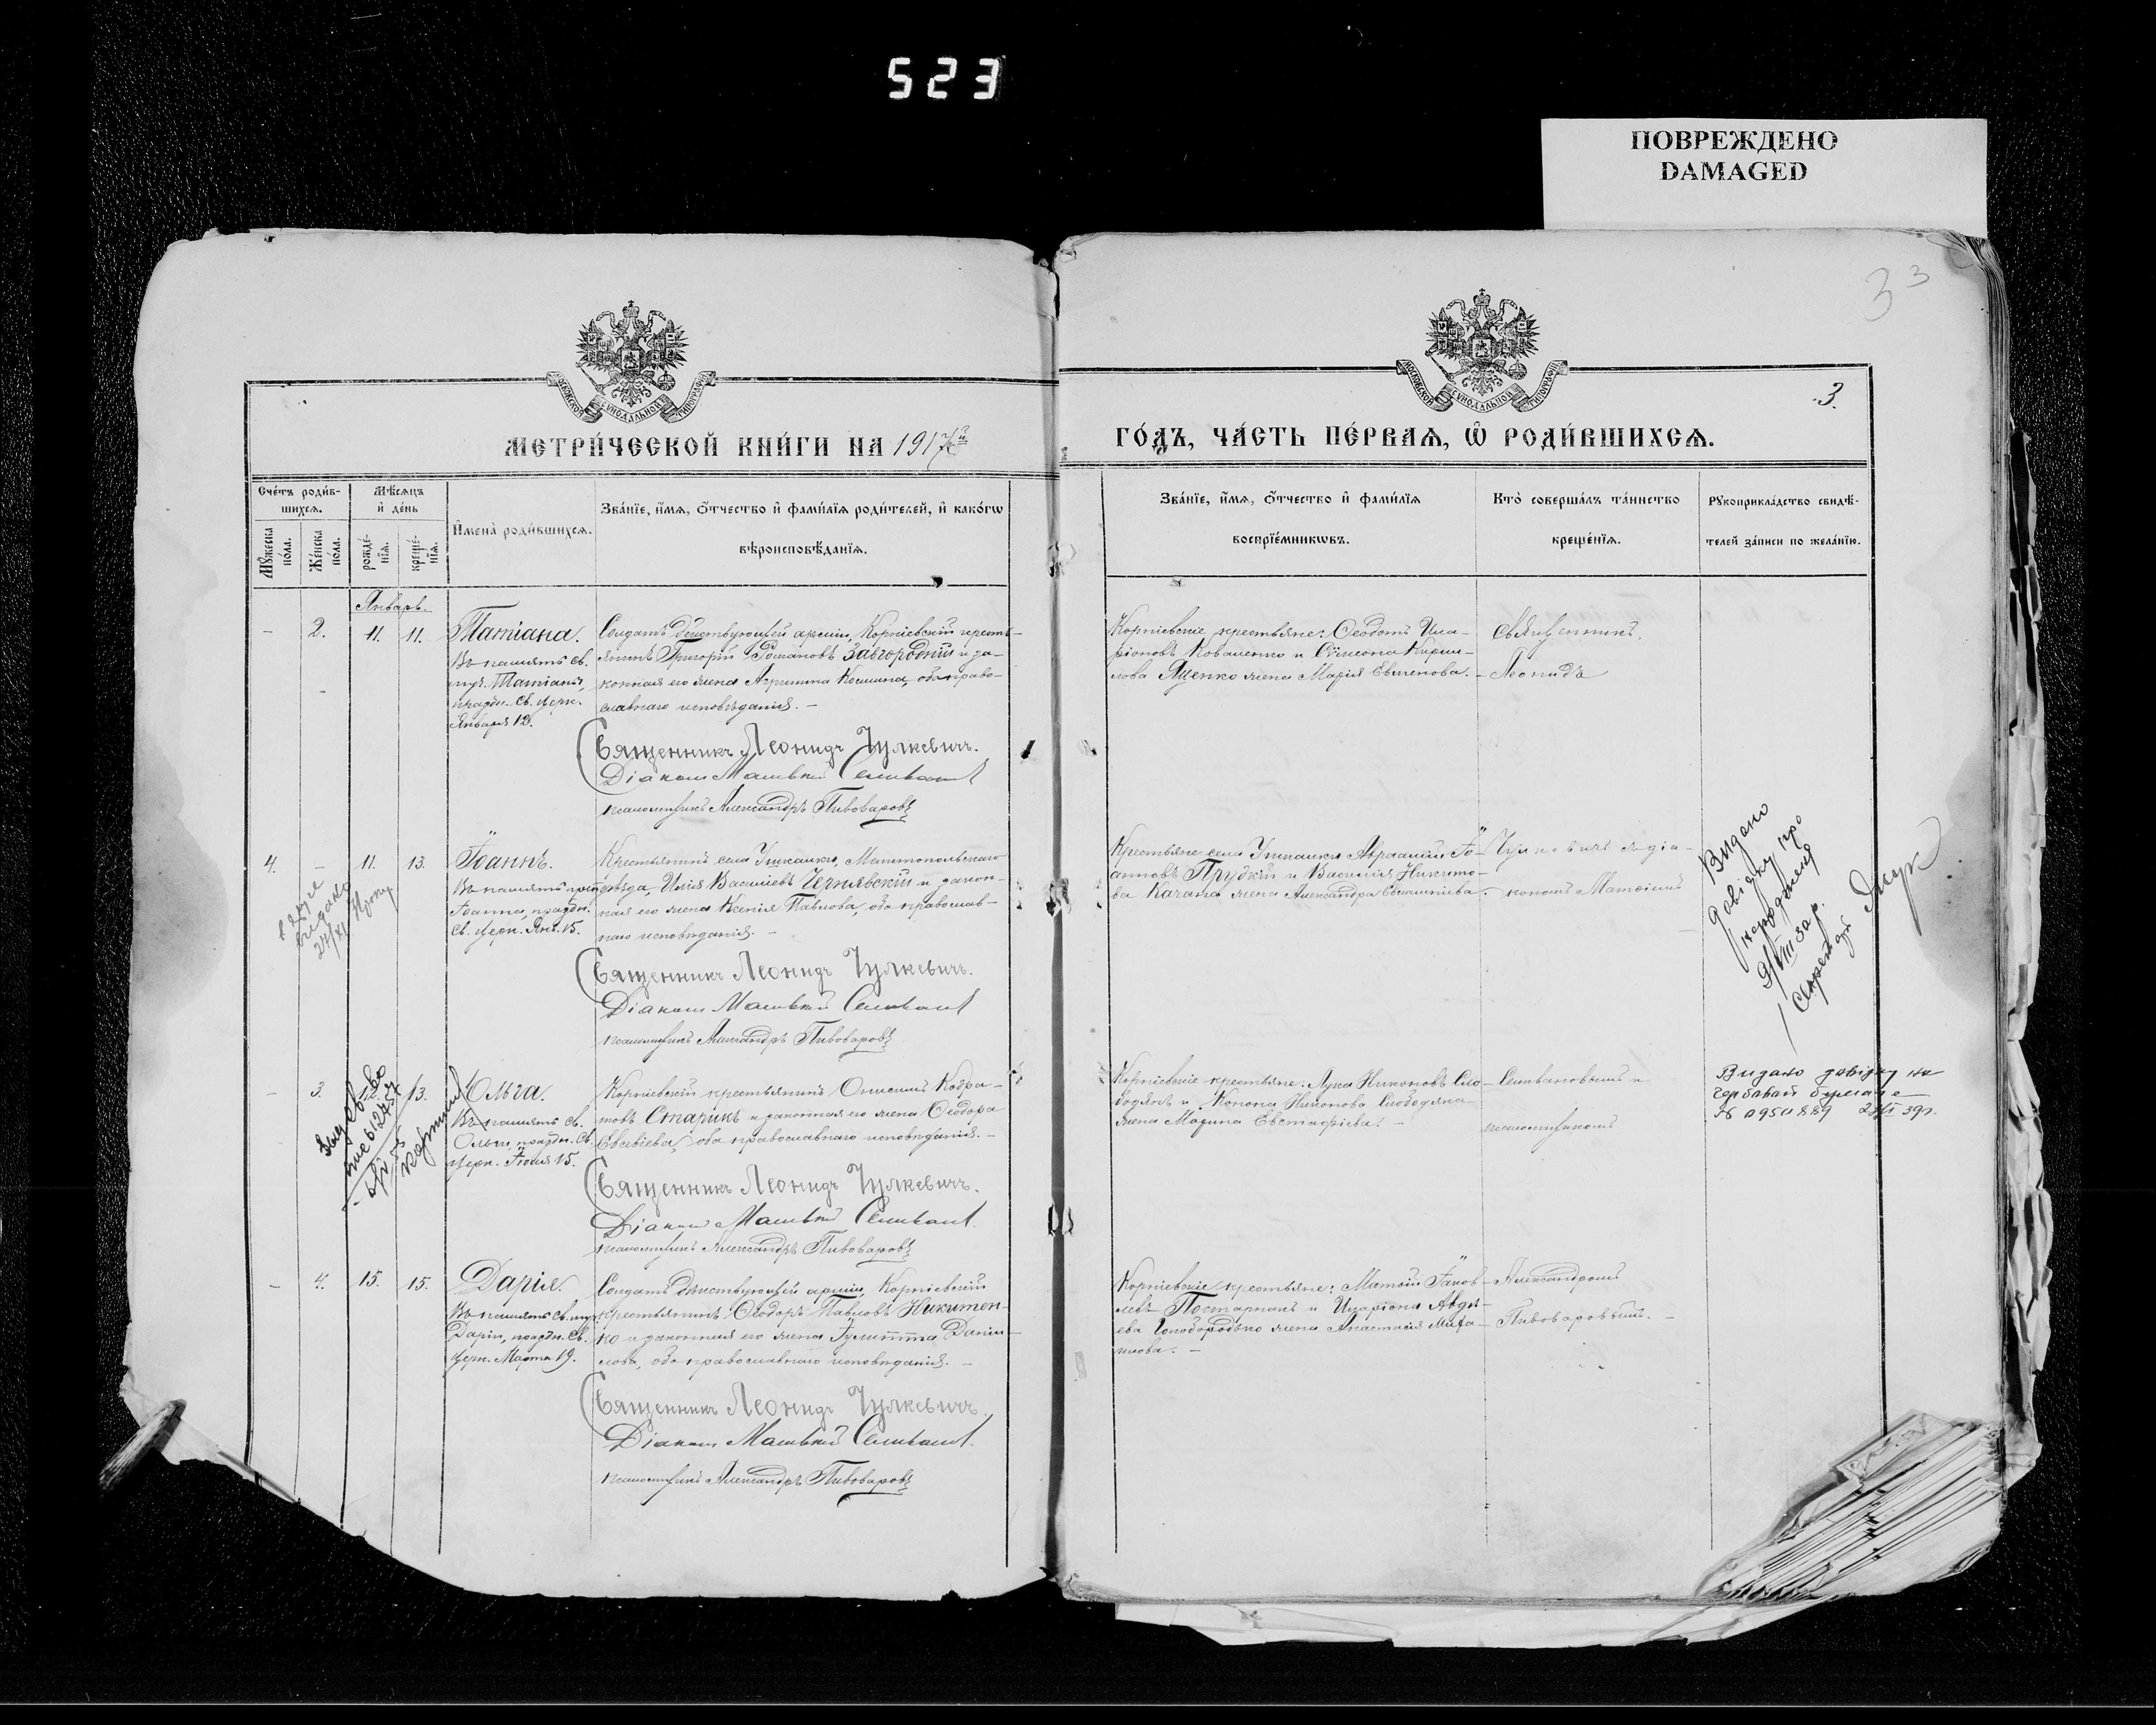 523
ПОВРЕЖДЕНО
DAMAGED
33
3.
МОСКОВСКОЙ СѴНОДАЛЬНОЙ ТИПОГРАФІИ
МОСКОВСКОЙ СѴНОДАЛЬНОЙ ТИПОГРАФІИ
МЕТРИ́ЧЕСКОЙ КНИ́ГИ НА 1917й
ГО́ДЪ, ЧА́СТЬ ПЕ́РВАѦ, Ѡ҆ РОДИ́ВШИХСѦ.
Сче́тъ роди́в-
шихсѧ.
Мѣ́сѧцъ
и҆ де́нь
Мꙋ́жеска
по́ла.
Же́нска
по́ла.
рожде́-
нїѧ.
креще́-
нїѧ.
И҆мена̀ роди́вшихсѧ.
Зва́нїе, и҆́мѧ, ѻ҆́тчество и҆ фами́лїѧ роди́телей, и҆ како́гѡ
вѣроисповѣ́данїѧ.
Зва́нїе, и҆́мѧ, ѻ҆́тчество и҆ фами́лїѧ
воспрїе́мникѡвъ.
Кто̀ соверша́лъ та́инство
креще́нїѧ.
Рꙋкоприкла́дство свидѣ́-
телей за́писи по жела́нїю.
Январь.
– 2. 11. 11.
Татіана.
Въ память св.
муч. Татіаны,
праздн. св. церк.
Января 12.
Солдатъ действующей арміи, Корніевскій кресть-
янинъ Григорій Романовъ Завгородній и за-
конная его жена Агрипина Космина, оба право-
славнаго исповѣданія. –
Священникъ Леонидъ Чулкевичъ.
Діаконъ Матвѣй Селивановъ
псаломщикъ Александръ Пивоваровъ
Корніевскіе крестьяне: Ѳеодотъ Ила-
ріоновъ Коваленко и Сѵмеона Кирил-
лова Яценко жена Марія Евменова. –
Священникъ.
Леонидъ
4. – 11. 13.
Іоаннъ.
Въ память преп.
Іоанна, праздн.
св. церк. Янв. 15.
Крестьянинъ села Умкалки, Мелитопольскаго
уѣзда, Илія Василіевъ Чернявскій и закон-
ная его жена Ксенія Павлова, оба православ-
наго исповѣданія. –
Священникъ Леонидъ Чулкевичъ.
Діаконъ Матвѣй Селивановъ
псаломщикъ Александръ Пивоваровъ
Авраамій Іо-
анновъ Прудкій и Василія Никито-
ва Качана жена Александра
Чулкевичъ и діа-
кономъ Матѳіемъ
видано
27/XI
Видано
довідку про
народження
9/VIII 30 р.
Секретар
– 3. 13.
Ольга.
Въ память св.
Ольги праздн. св.
церк. Іюля 15.
Корніевскій крестьянинъ Онисимъ Кодра-
товъ Старикъ и законная его жена Ѳеодора
Евсевіева, оба православнаго исповѣданія. –
Священникъ Леонидъ Чулкевичъ.
Діаконъ Матвѣй Селивановъ.
псаломщикъ Александръ Пивоваровъ
Корніевскіе крестьяне: Лука Никоновъ Сло-
бодянъ и Конона Никонова Слободяна
жена Марина Евстафіева. –
Селивановымъ и
псаломщикомъ
Видано довідку на
гербовай бумаге
№ 0950889
– 4. 15. 15.
Дарія.
Въ память св. муч.
Даріи, праздн. св.
церк. Марта 19.
Солдатъ дѣйствующей арміи, Корніевскій
крестьянинъ Ѳеодоръ Павловъ Никитен-
ко и законная его жена Іулитта Даніи-
лова, оба православнаго исповѣданія. –
Священникъ Леонидъ Чулкевичъ.
Діаконъ Матвѣй Селивановъ.
псаломщикъ Александръ Пивоваровъ
Корніевскіе крестьяне: Матѳій Іаков-
левъ Постарнакъ и Иларіона Авдѣ-
ева Голобородько жена Анастасія Миха-
илова. –
Александромъ
Пивоваровымъ. –